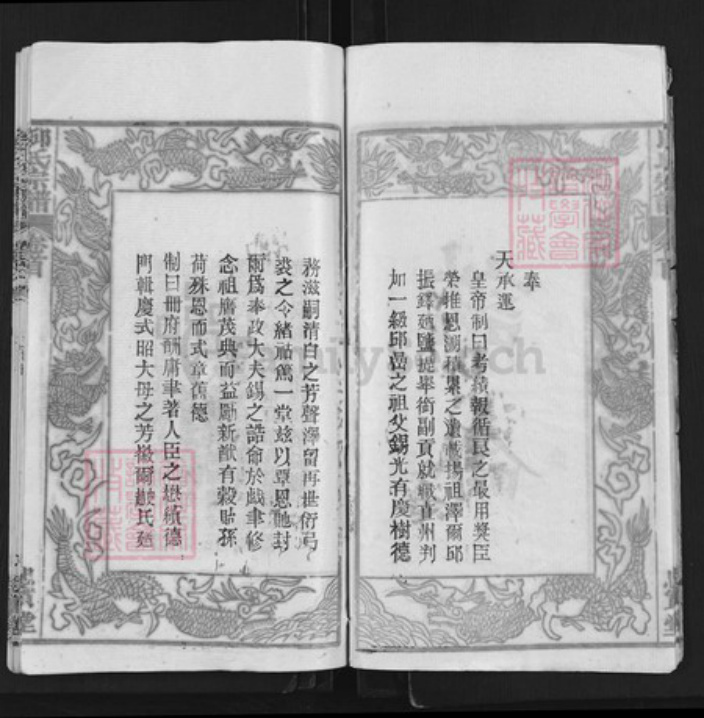 奉
天承運
皇帝制曰考績報循良之最用獎臣
榮推恩溯積累之遺載揚祖澤爾邱
振鐸廼鹽提舉銜副貢就職直州判
加一級邱嵒之祖父錫光有慶樹德
務滋嗣清白之芳聲澤留再世衍弓
裘之令緒祜篤一堂茲以覃恩貤封
爾為奉政大夫錫之誥命於戲聿修
念祖膺茂典而益勵新猷有穀貽孫
荷殊恩而式章舊德
制曰冊府酬庸聿著人臣之懋績德
門輯慶式昭大母之芳徽爾趙氏廼
邱氏宗譜
卷首